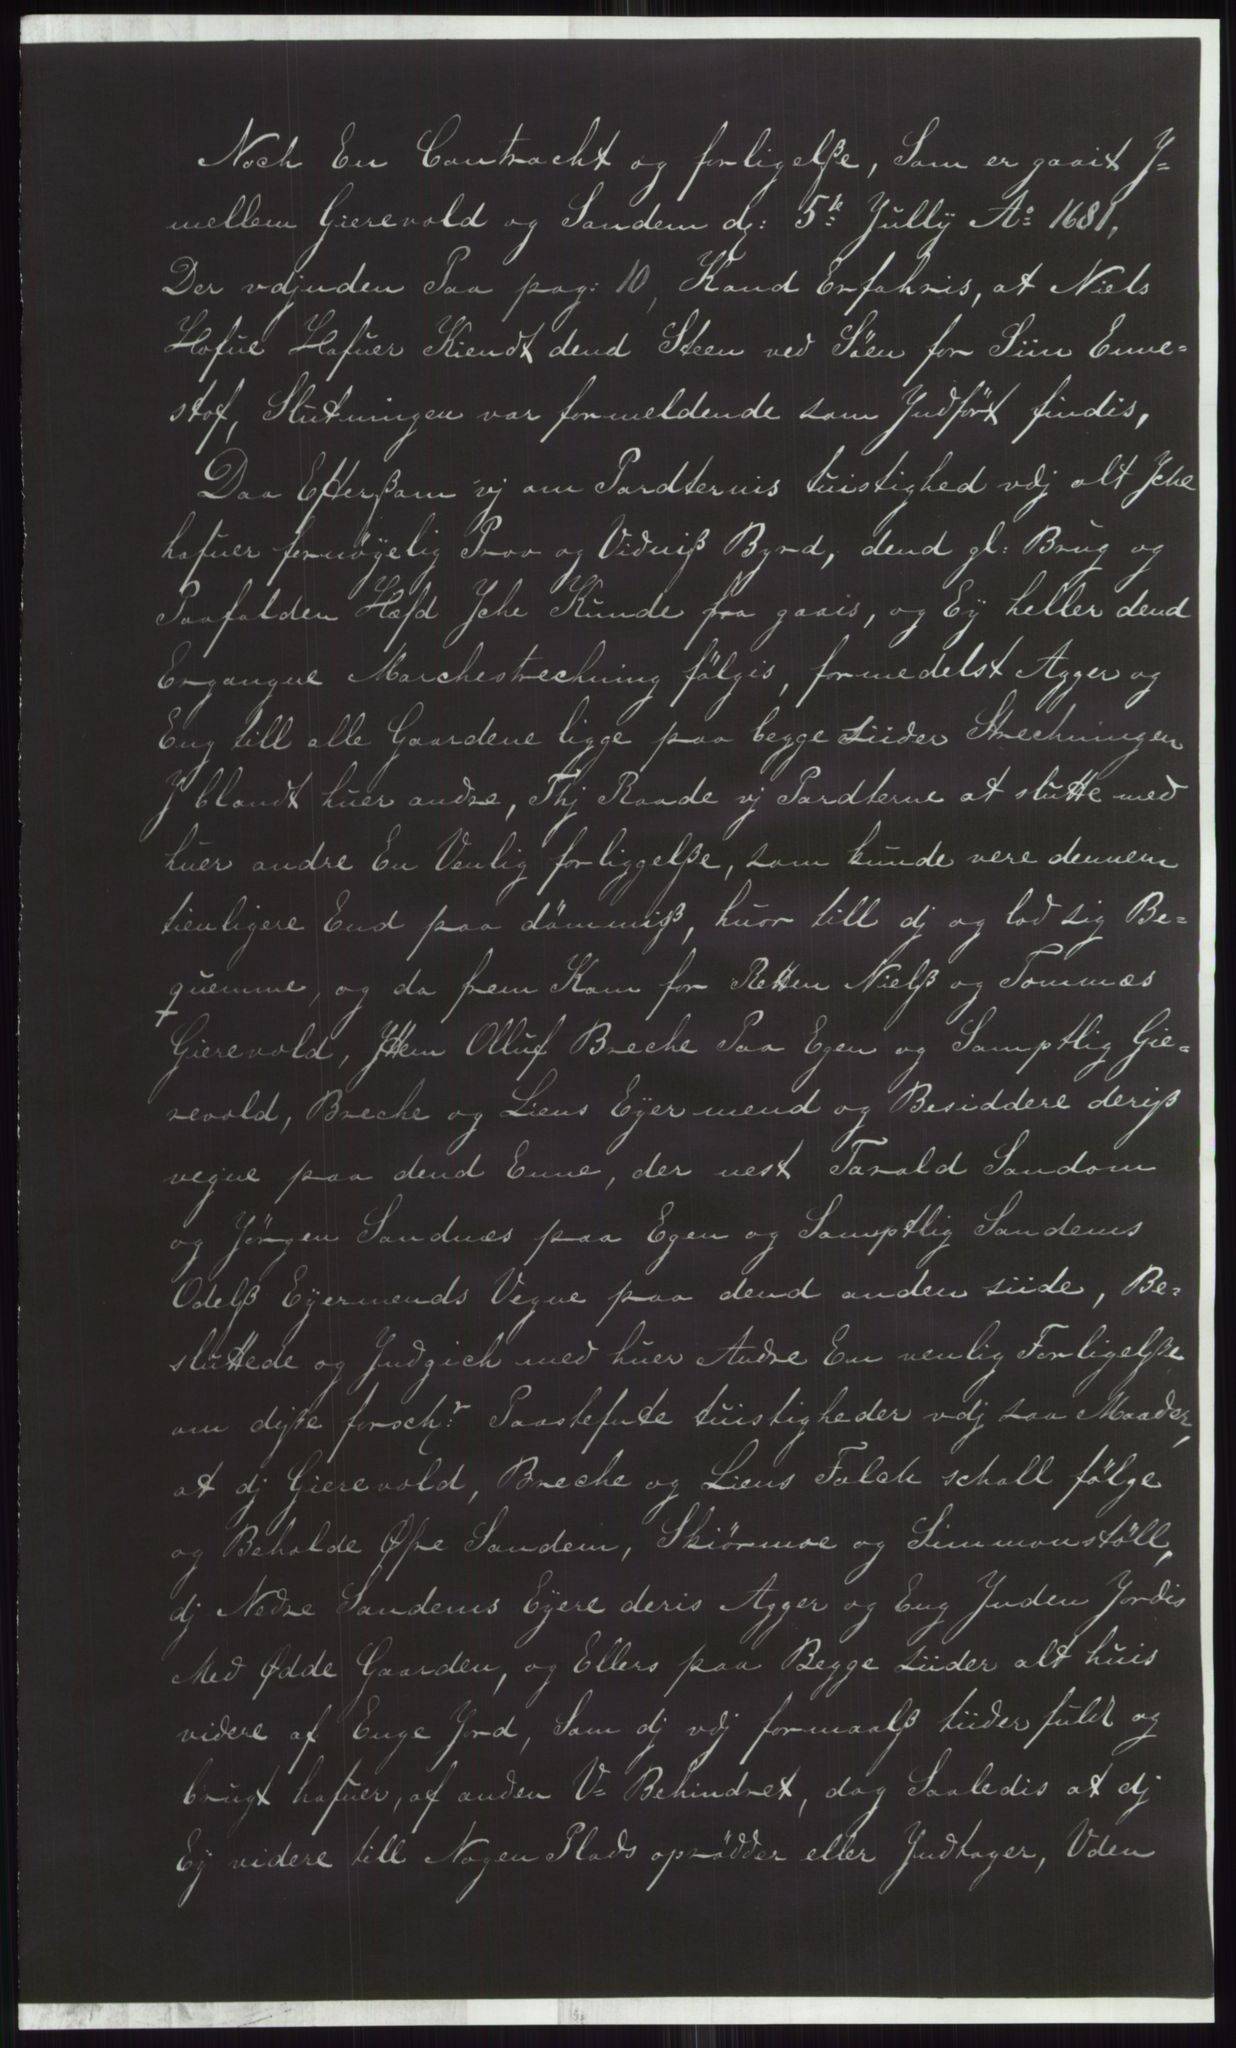 Noch En Contracht og forligelsze, Som er gaait Y=
mellem Gierevold og Sandem dj: 5te Jülly Ao 1681,
Der vdjnden Paa pag: 10, Kand Erfahris, at Niels
Hofue Hafuer Kiendt dend Steen ved Söen for Siin Enne=
stof, Slutningen var formeldende som Jndfört findis,
Daa Efterszom vj om Pardternis tuistighed vdj alt Jche
hafuer fornöyelig Prov og Vidnisz Byrd, dend gl: Brug og
Paafalden Hæfd Jche Kunde fra gaais, og Eÿ heller dend
Ergangne Marchestrechning fölgis, formedelst Agger og
Eng till alle Gaardene ligge paa begge siider Strechningen
J blandt huer andre, Thj Raade vj Pardterne at slutte med
huer andre En Venlig forliggelsze, som kunde vere dennem
tienligere End paa dömmisz, huor till dj og lod sig Be=
quemme, og da frem Kom for Retten Nielsz og Tommæs
Gierevold, Jttem Olluf Breche Paa Egen og Samptlig Gie=
revold, Breche og Liens Eÿermend og Besiddere derisz
vegne paa dend Enne, der nest Tarald Sandom
og Jörgen Sandnes paa Egen og Samptlig Sandems
Odelsz Eÿermends Vegne paa dend anden siide, Be=
sluttede og Jndgich med huer Andre En venlig Forligelsze
om disze forschr: Paastefnte tuistigheder vdj saa Maader,
at dj Gierevold, Breche og Liens Folch schall fölge
og Beholde Øfre Sandem, Skiörmoe og Simmonstöll,
dj Nedre Sandems Eÿere deris Agger og Eng Jnden Jordis
Med Ødde Gaarden, og Ellers paa Begge siider alt huis
videre af Enge Jord, Som dj vdj formaalsz tiider fuldt og
brugt hafuer, af anden V= Behindret, dog Saaledis at dj
Eÿ videre till Nogen Plads oprödder eller Jndtager, Uden